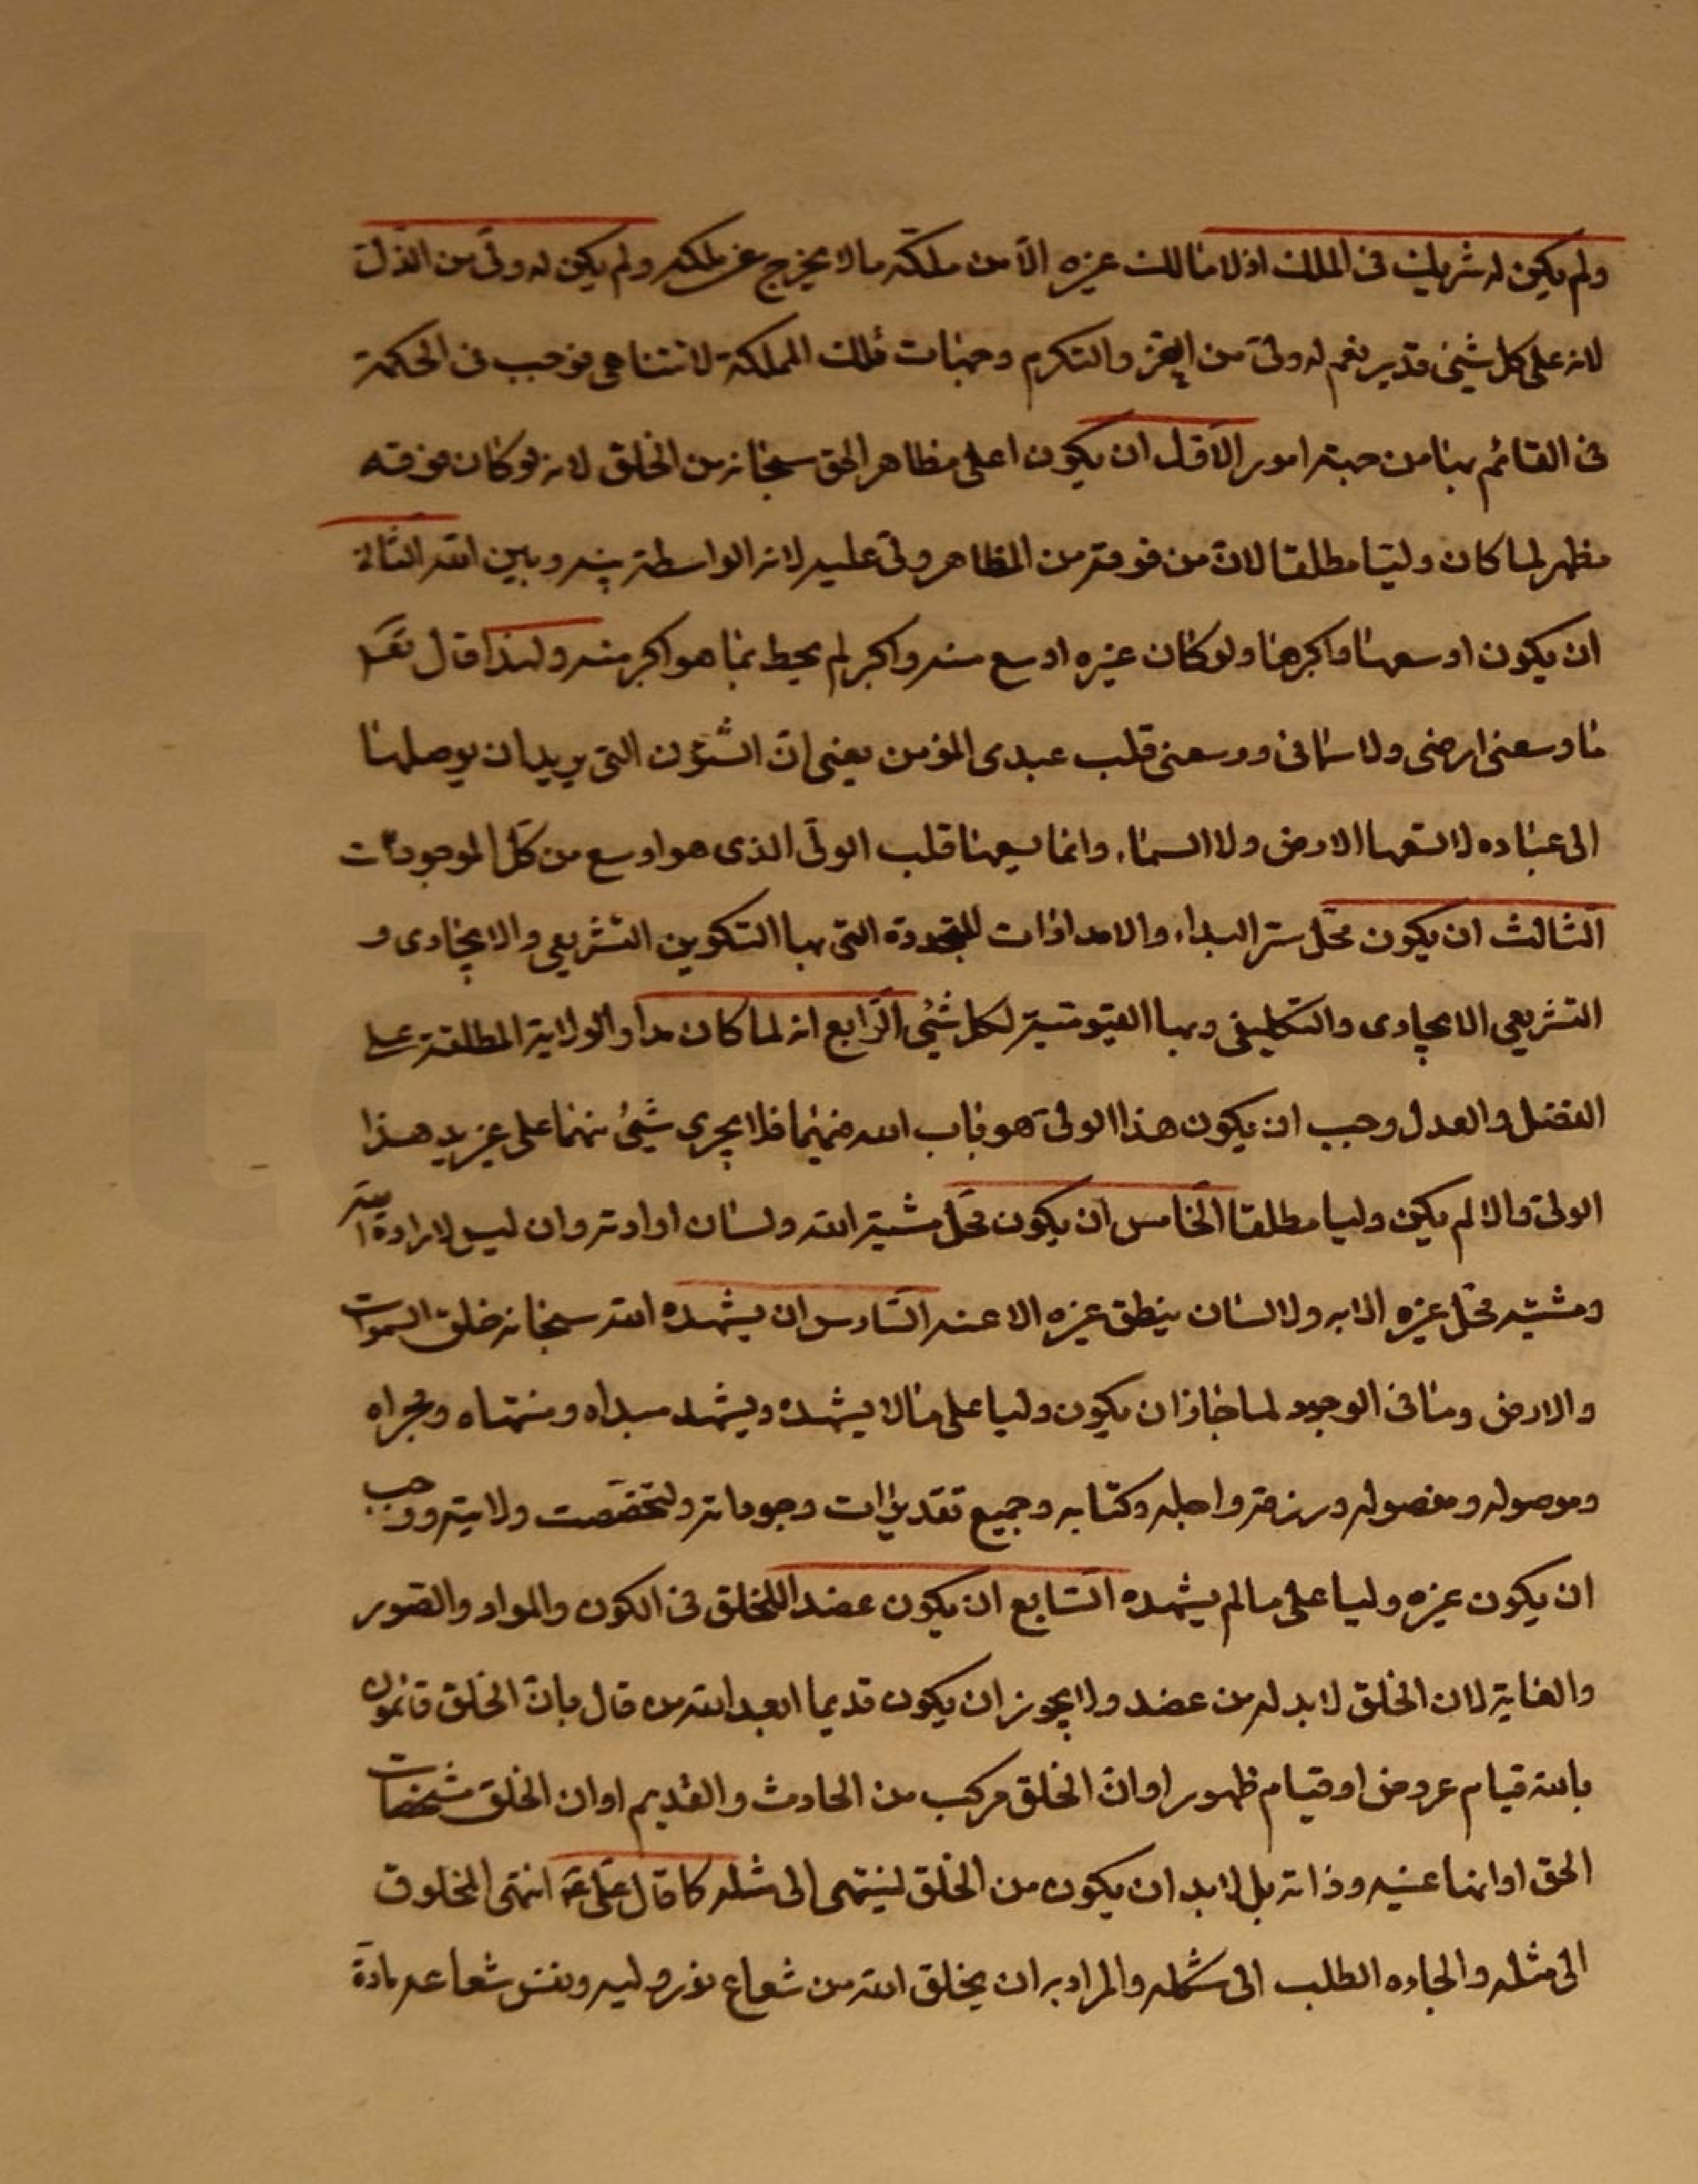 ولم يكن له شريك فى الملك اذ لا مالك غيره الا من ملكه مالا يخرج عن ملكه ولم يكن له ولى من الذل
لانه على كل شىء قدير نعم له ولى من العز والتكرم وجهات تلك المملكة لا تتناهى فوجب فى الحكمة
فى القائم بها من جهته امور الاول ان يكون اعلى مظاهر الحق سبحانه من الخلق لانه لو كان فوقه
مظهر لما كان وليا مطلقا لان من فوقه من المظاهر ولى عليه لانه الواسطة بينه وبين الله الثانى
ان يكون اوسعها واكبرها ولو كان غيره اوسع منه واكبر لم يحط بما هو اكبر منه ولهذا قال تعالى
ما وسعنى ارضى ولا سمائى ووسعنى قلب عبدى المؤمن يعنى ان الشؤن التى يريد ان يوصلها
الى عباده لا تسعها الارض ولا السماء وانما يسعها قلب الولى الذى هو اوسع من كل الموجودات
الثالث ان يكون محل سر البداء والامدادات المتجددة التى بها التكوين التشريعى والايجادى و
التشريعى الايجادى والتكليفى وبها القيومية لكل شىء الرابع انه لما كان مدار الولاية المطلقة على
الفضل والعدل وجب ان يكون هذا الولى هو باب الله فيهما فلا يجرى شىء منهما على غير يد هذا
الولى والا لم يكن وليا مطلقا الخامس ان يكون محل مشية الله ولسان ارادته وان ليس لارادة الله
ومشيته محل غيره الا به ولا لسان ينطق غيره الا عنه السادس ان يشهده الله سبحانه خلق السموات
والارض وما فى الوجود لما جاز ان يكون وليا على مالا يشهده ويشهد مبداه ومنتهاه ومجراه
وموصوله ومفصوله ورزقه واجله وكتابه وجميع تقديرات وجوداته ولتخصصت ولايته ووجب
ان يكون غيره وليا على ما لم يشهده السابع ان يكون عضدا للخلق فى الكون والمواد والصور
والغاية لان الخلق لا بد له من عضد ولا يجوز ان يكون قديما ابعد الله من قال بان الخلق قائمون
بالله قيام عروض او قيام ظهور او ان الخلق مركب من الحادث والقديم او ان الخلق مشخصات
الحق او انها عنيه وذاته بل لا بد ان يكون من الخلق لينتهى الى مثله كما قال على ع انتهى المخلوق
الى مثله والجاه الطلب الى شكله والمراد به ان يخلق الله من شعاع نور وليه ونفس شعاعه مادة